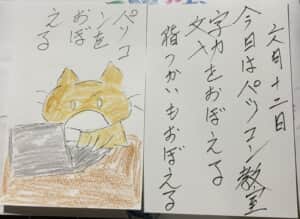 六月十二日
今日はパソコン教室
文字入力をおぼえる
指つかいもおぼえる
パソコ
ンを
おぼ
える